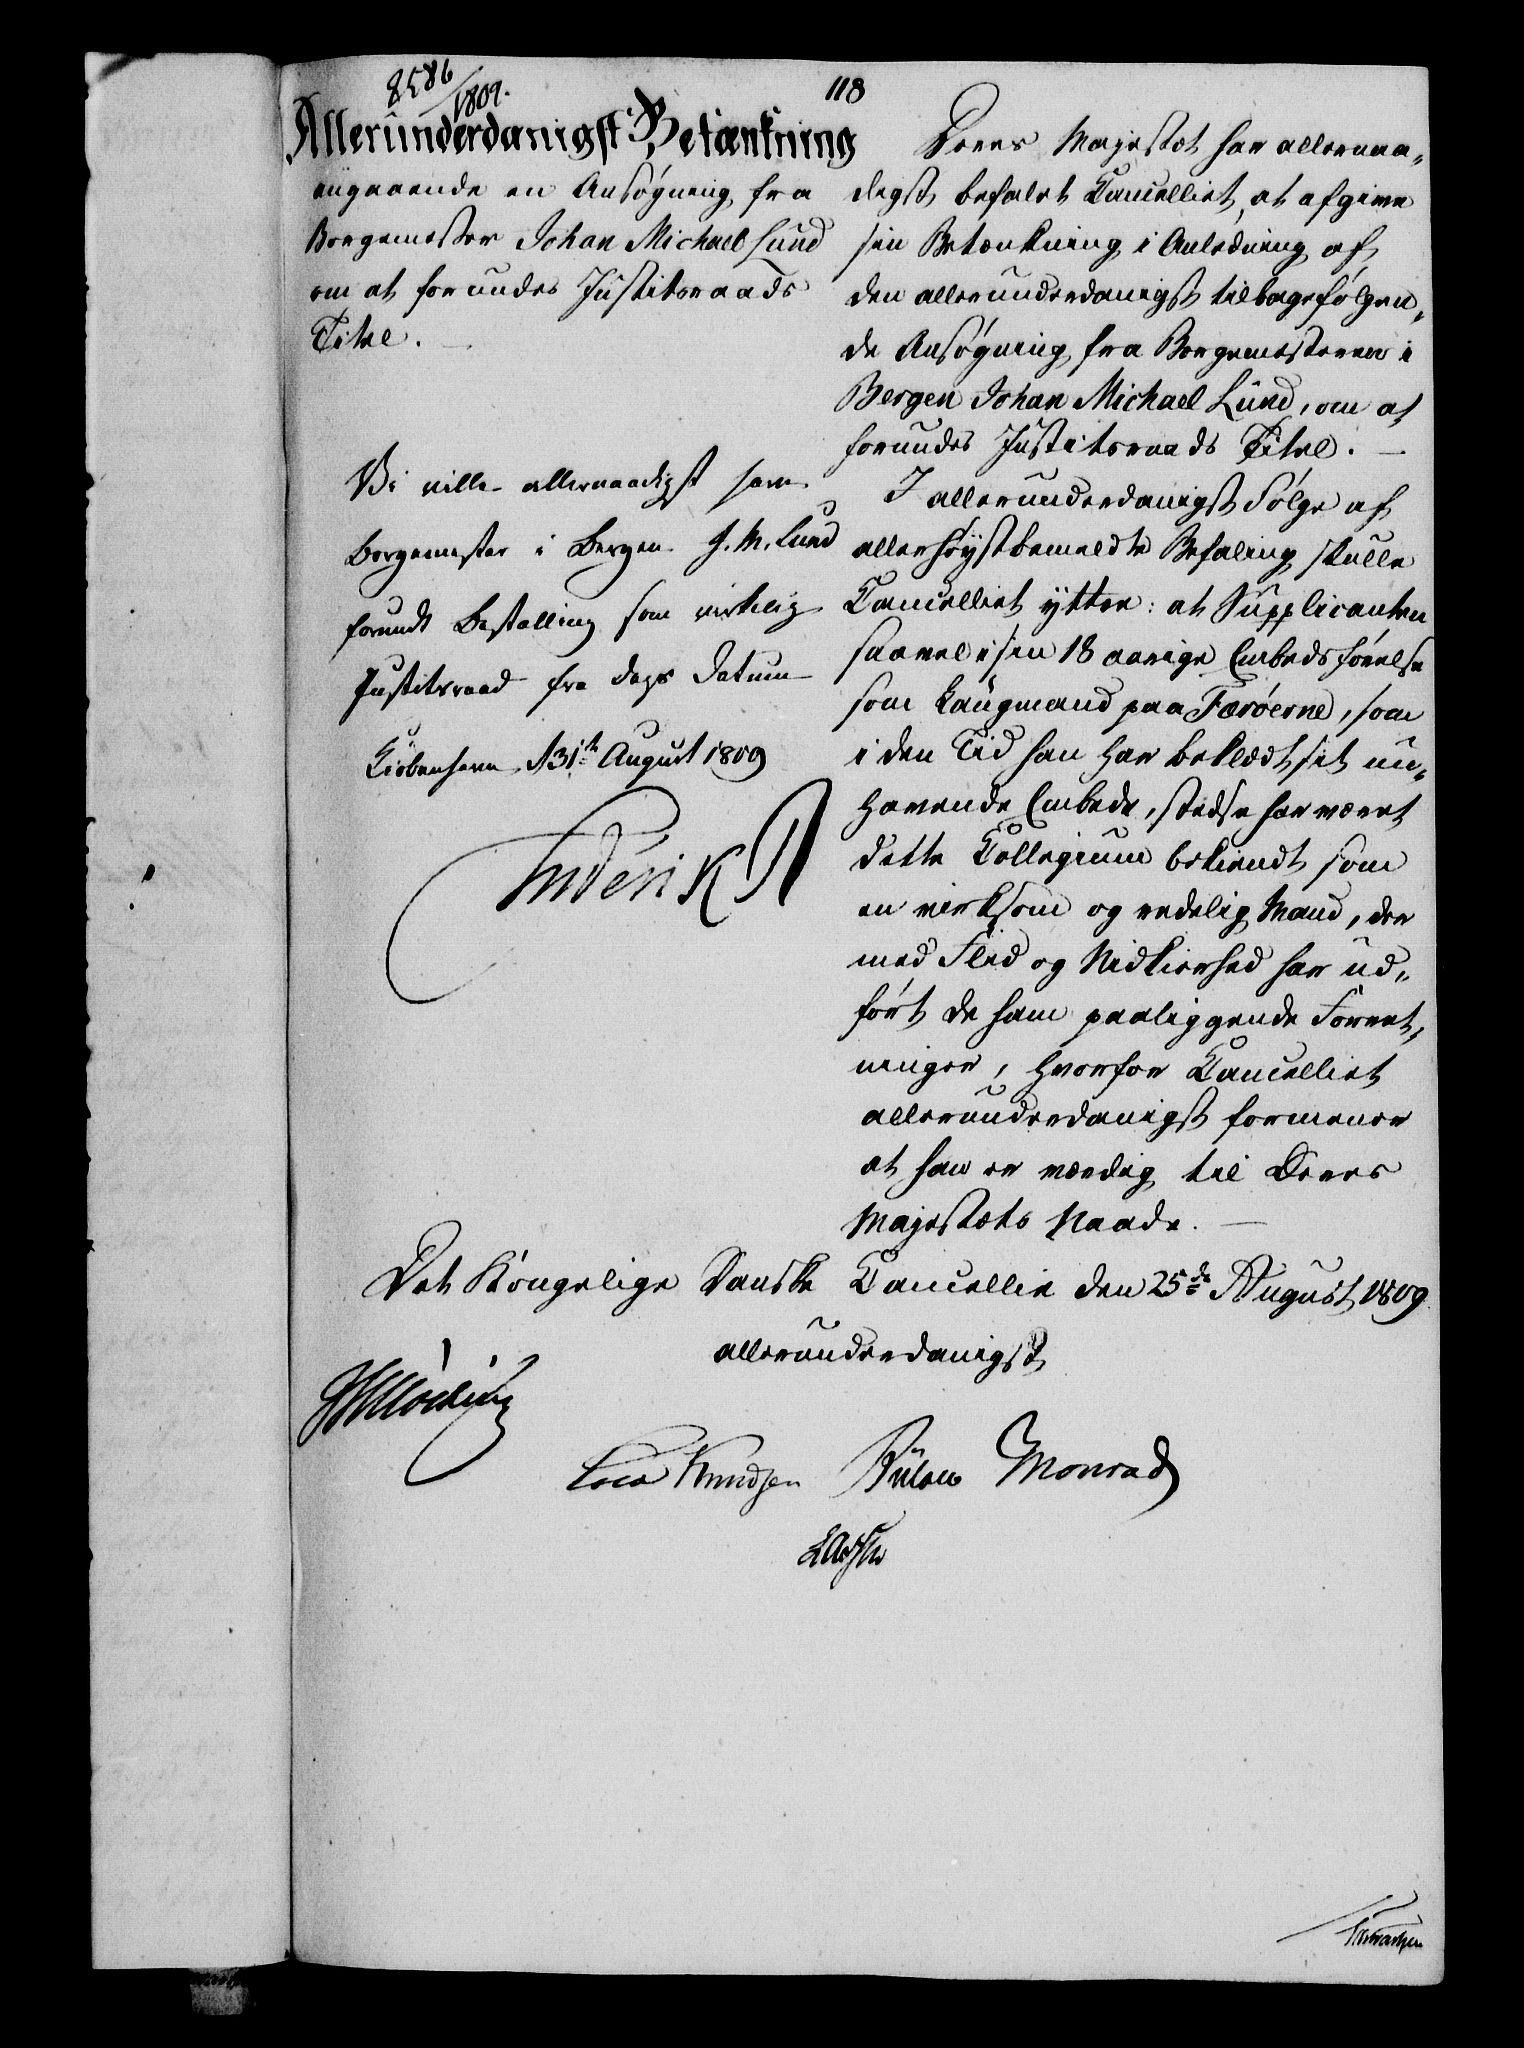 8586/1809.
118
Allerunderdanigst Betænkning
angaaende en Ansøgning fra
Borgemester Johan Michael Lund
om at forundes Justitsraads
Titel.
Vi ville allernaadigst have
Borgemester i Bergen J. M. Lund
forundt Bestalling som virkelig
Justitsraad fra dags Datum
Kiöbenhavn d 31te August 1809
Frederik R
Deres Majestæt har allernaa-
digst befalet Cancelliet, at afgive
sin Betænkning i Anledning af
den allerunderdanigst tilbagefølgen-
de Ansøgning fra Borgemesteren i
Bergen Johan Michael Lund, om at
forundes Justitsraads Titel.
I allerunderdanigst Følge af
allerhøystbemeldte Befaling skulle
Cancelliet yttre: at Supplicanten
saavel i sin 18 aarige Embedsførelse
som Laugmand paa Færøerne, som
i den Tid han har beklædt sit nu-
havende Embede, stedse har været
dette Collegium bekiendt som
en virksom og redelig Mand, der
med Flid og Nidkierhed har ud-
ført de ham paaliggende Forret-
ninger, hvorfor Cancelliet
allerunderdanigst formener
at han er værdig til Deres
Majestæts Naade.
Det Kongelige Danske Cancellie den 25de August 1809.
allerunderdanigst
Knudsen Bülow Monrad